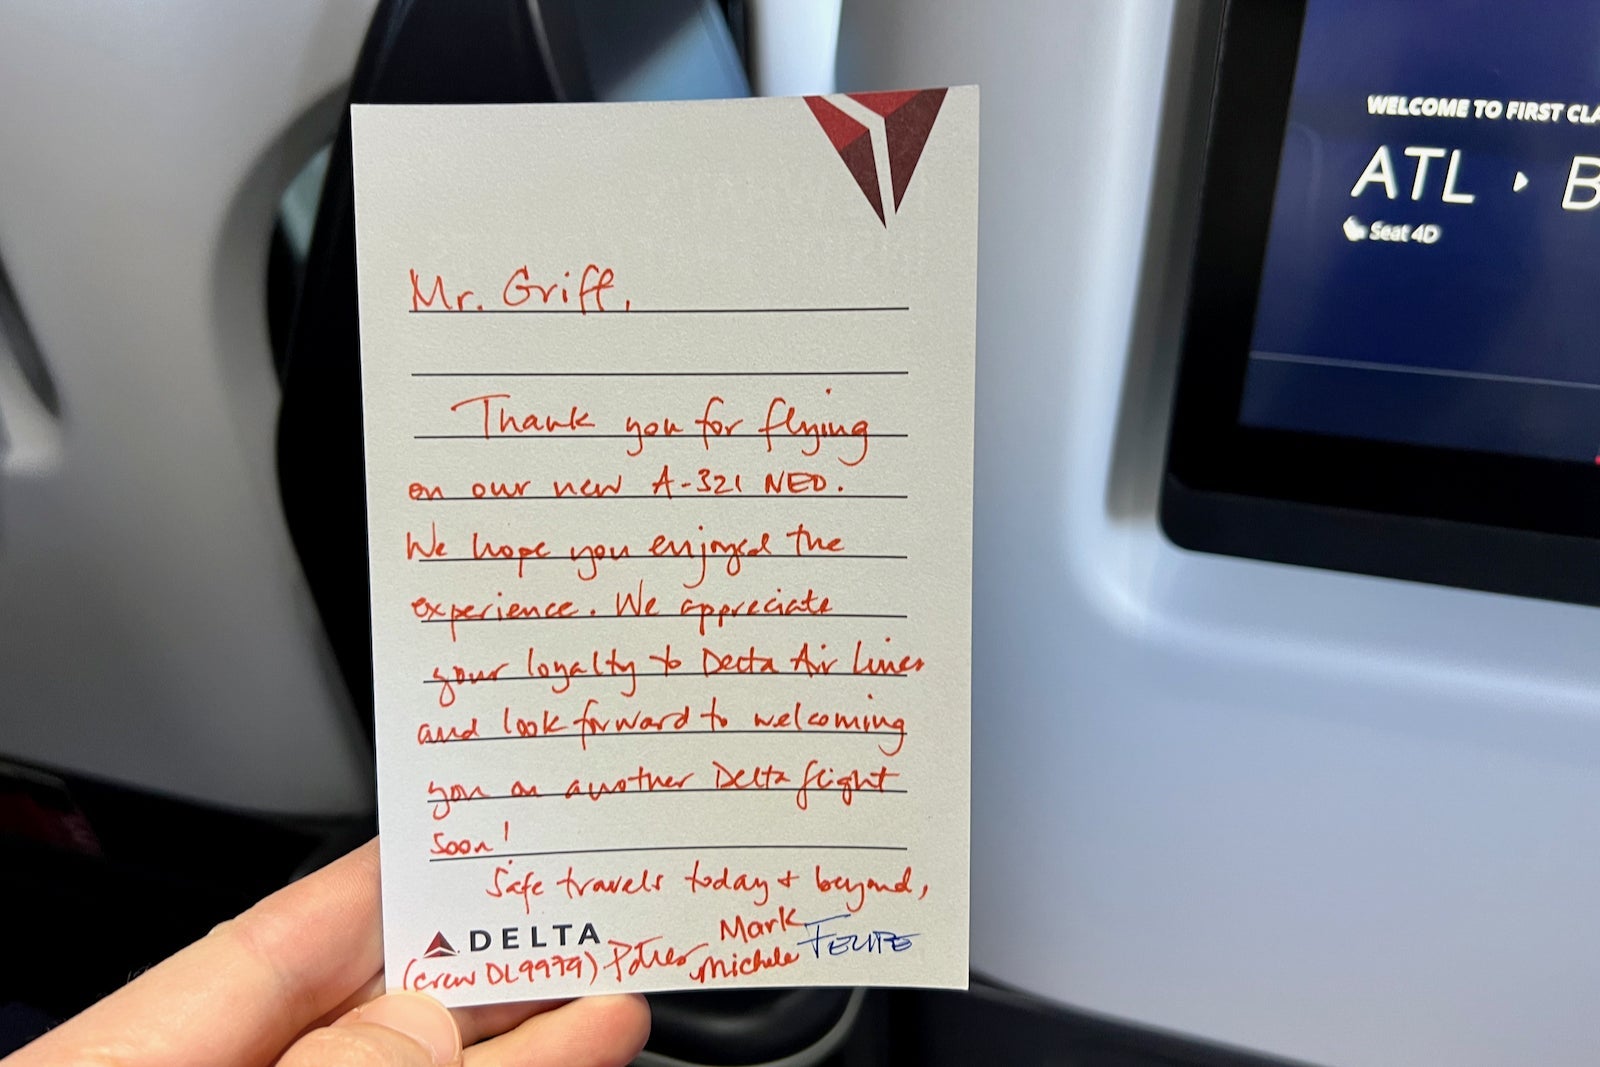 Mr. Griff,
Thank you for flying
on our new A-321 NEO.
We hope you enjoyed the
experience. We appreciate
your loyalty to Delta Air Lines
and look forward to welcoming
you on another Delta flight
soon!
Safe travels today + beyond,
Mark
DELTA
FELIPE
(crew DL9979)
Michele
WELCOME TO FIRST CLA
ATL ▸ B
Seat 4D